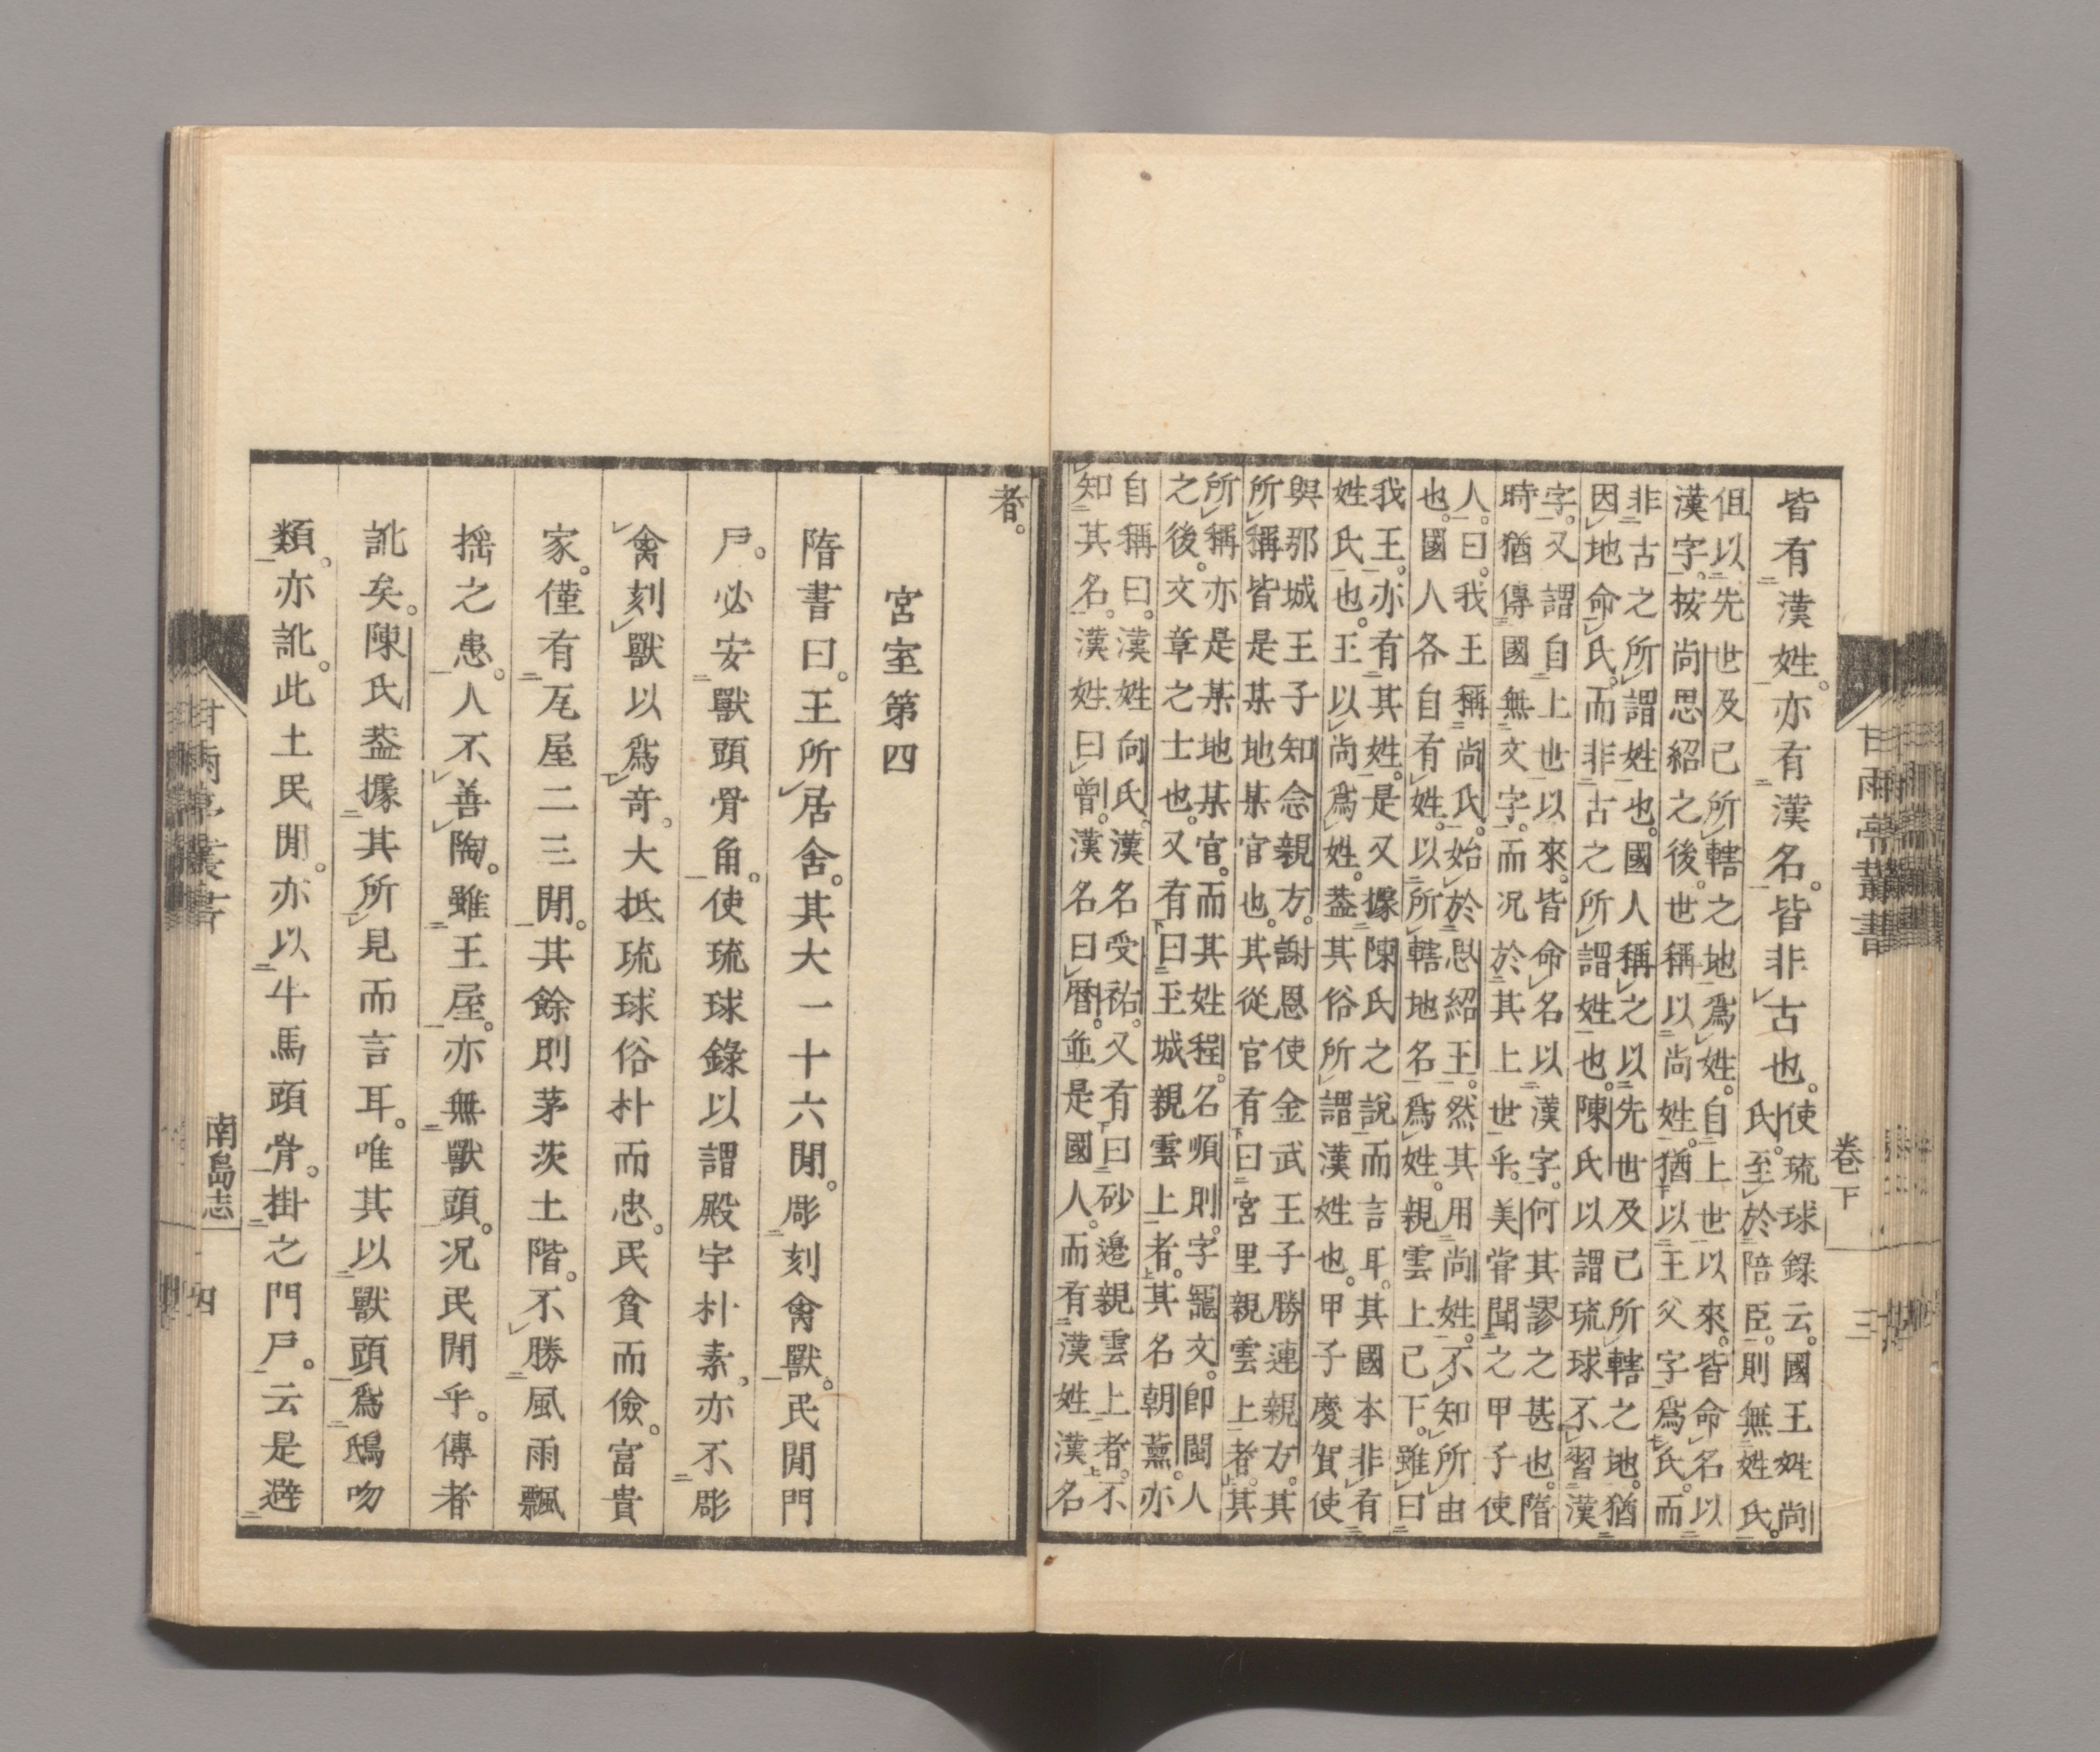 皆有漢姓。亦有漢名。皆非古也。使琉球錄云。國王姓尚
氏。至於陪臣。則無姓氏。
但以先世及己所轄之地爲姓。自上世以來。皆命名以
漢字。按尚思紹之後。世稱以尚姓。猶以王父字爲氏。而
非古之所謂姓也。國人稱之以先世及己所轄之地。猶
因地命氏。而非古之所謂姓也。陳氏以謂琉球不習漢
字。又謂自上世以來。皆命名以漢字。何其謬之甚也。隋
時猶傳國無文字。而況於其上世乎。美嘗聞之甲子使
人。曰。我王稱尚氏。始於思紹王。然其用尚姓。不知所由
也。國人各自有姓。以所轄地名爲姓。親雲上已下。雖曰
我王。亦有其姓。是又據陳氏之說而言耳。其國本非有
姓氏也。王以尚爲姓。葢其俗所謂漢姓也。甲子慶賀使
與那城王子知念親方。謝恩使金武王子勝連親方。其
所稱皆是某地某官也。其從官有曰宮里親雲上者。其
所稱亦是某地某官。而其姓程。名順則。字寵文。卽閩人
之後。文章之士也。又有曰玉城親雲上者。其名朝薰。亦
自稱曰。漢姓向氏。漢名受祐。又有曰砂邊親雲上者。不
知其名。漢姓曰曾。漢名曰曆。並是國人。而有漢姓漢名
甘雨亭叢書
卷下
三
者。
宮室第四
隋書曰。王所居舍。其大一十六閒。彫刻禽獸。民閒門
戶。必安獸頭骨角。使琉球錄以謂殿宇朴素。亦不彫
禽刻獸以爲奇。大抵琉球俗朴而忠。民貧而儉。富貴
家。僅有瓦屋二三閒。其餘則茅茨土階。不勝風雨飄
搖之患。人不善陶。雖王屋。亦無獸頭。況民閒乎。傳者
訛矣。陳氏葢據其所見而言耳。唯其以獸頭爲鴟吻
類。亦訛。此土民閒。亦以牛馬頭骨。掛之門戶。云是避
甘雨亭叢書
南島志
四